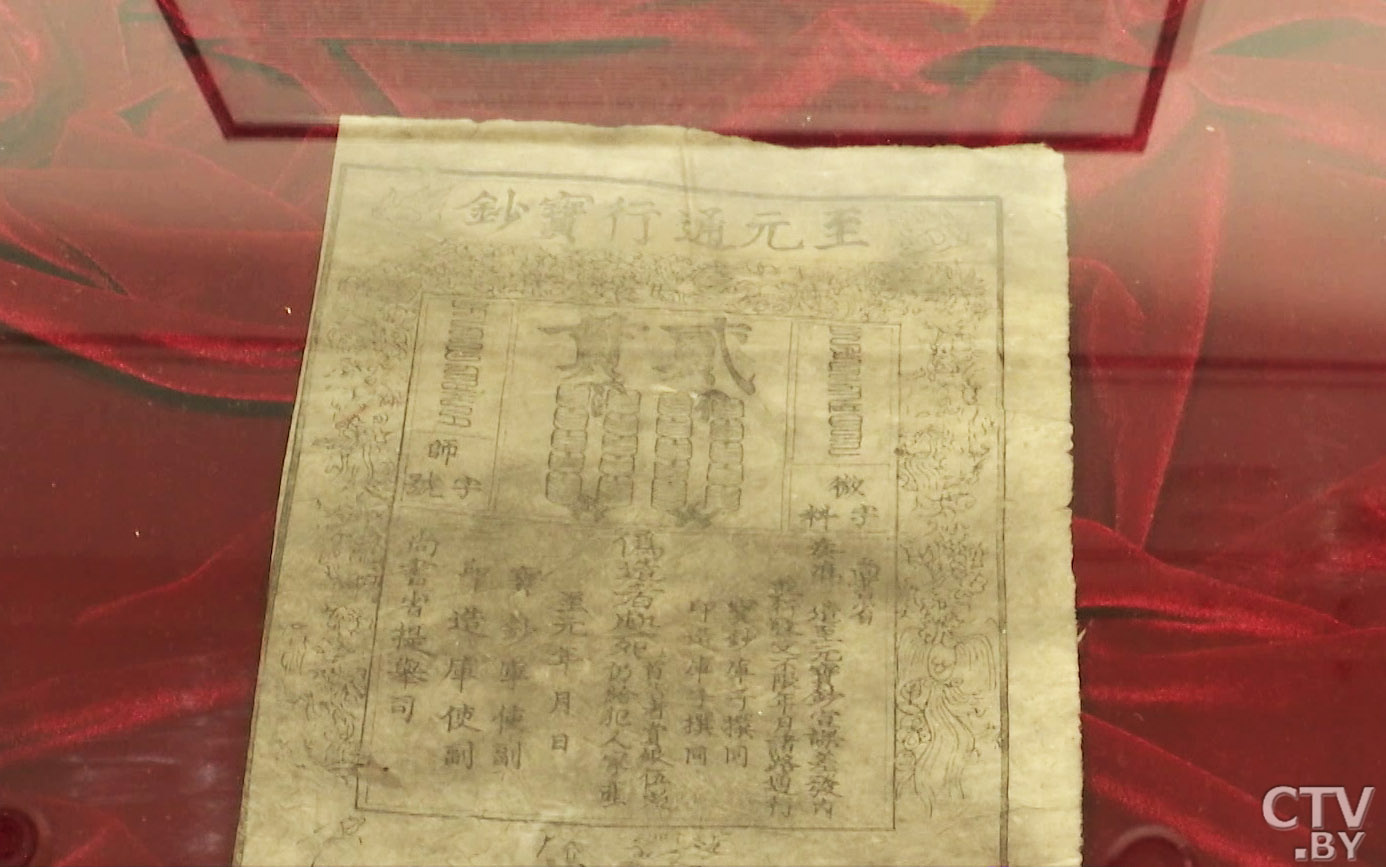 至元通行寶鈔
貳貫
微字
料
師字
號
尚書省
奏准 至元寶鈔宣課差發內
收受不限年月諸路通行
寶鈔庫子撰同
印造庫子撰同
偽造者處死
首告者賞銀伍
仍給犯人家産
至元年月日
寶鈔庫使副
印造庫使副
尚書省提舉司
CTV
.BY